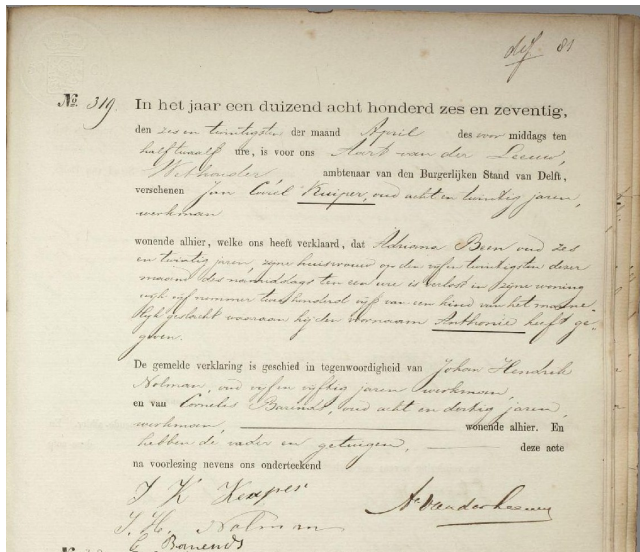 def. 81
No. 319. In het jaar een duizend acht honderd zes en zeventig,
den zes en twintigsten der maand April des voor middags ten
half twaalf ure, is voor ons Aart van der Leeuw,
Wethouder, ambtenaar van den Burgerlijken Stand van Delft,
verschenen Jan Kuiper, oud acht en twintig jaren,
werkman
wonende alhier, welke ons heeft verklaard, dat Adriana Been oud zes
en twintig jaren, zijne huisvrouw op den vijf en twintigsten dezer
maand des namiddags ten een ure is verlost in zijne woning
wijk vijf nummer twee honderd vijf van een kind van het manne-
lijk geslacht waaraan hij den voornaam Anthonie heeft ge-
geven.
De gemelde verklaring is geschied in tegenwoordigheid van Johan Hendrik
Nolman, oud vijf en vijftig jaren werkman,
en van Cornelis Barends, oud acht en dertig jaren,
werkman, wonende alhier. En
hebben de vader en getuigen, deze acte
na voorlezing nevens ons onderteekend
J K Kuiper
A. van der Leeuw
J. H. Nolman
C. Barends